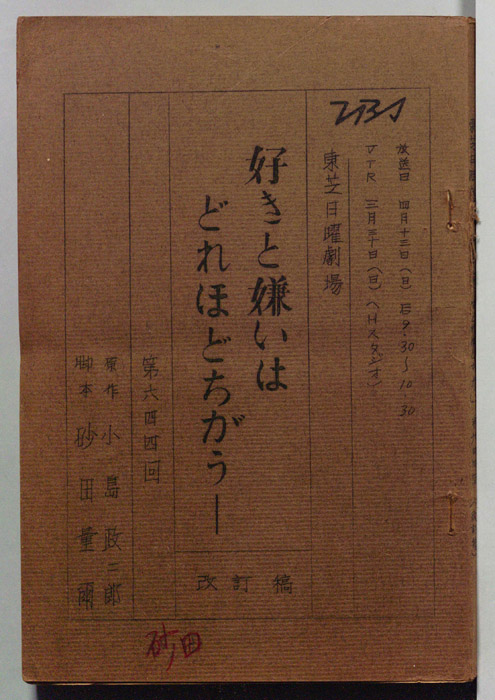 放送日 四月十三日（日）后9.30〜10.30
VTR 三月三十日（日）（Hスタジオ）
TBS
東芝日曜劇場
好きと嫌いは
どれほどちがうー
改訂稿
第六四四回
原作 小島政二郎
脚本 砂田量爾
砂田